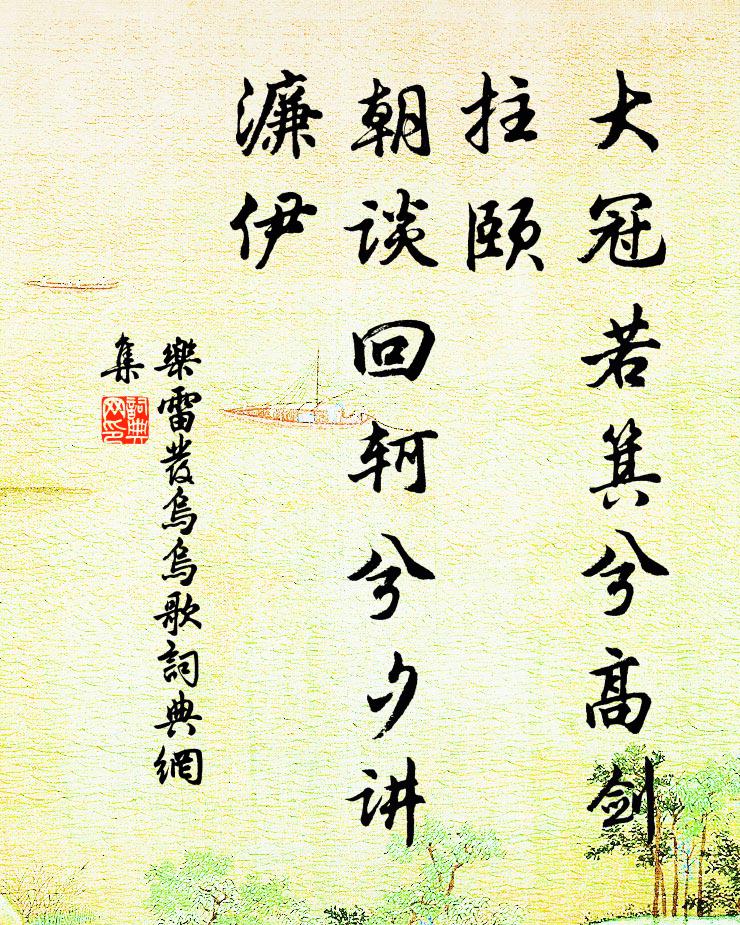 大冠若箕兮高剑
拄颐
朝谈回轲兮夕讲
濂伊
樂雷發烏烏歌詞典網
集
詞典
网印